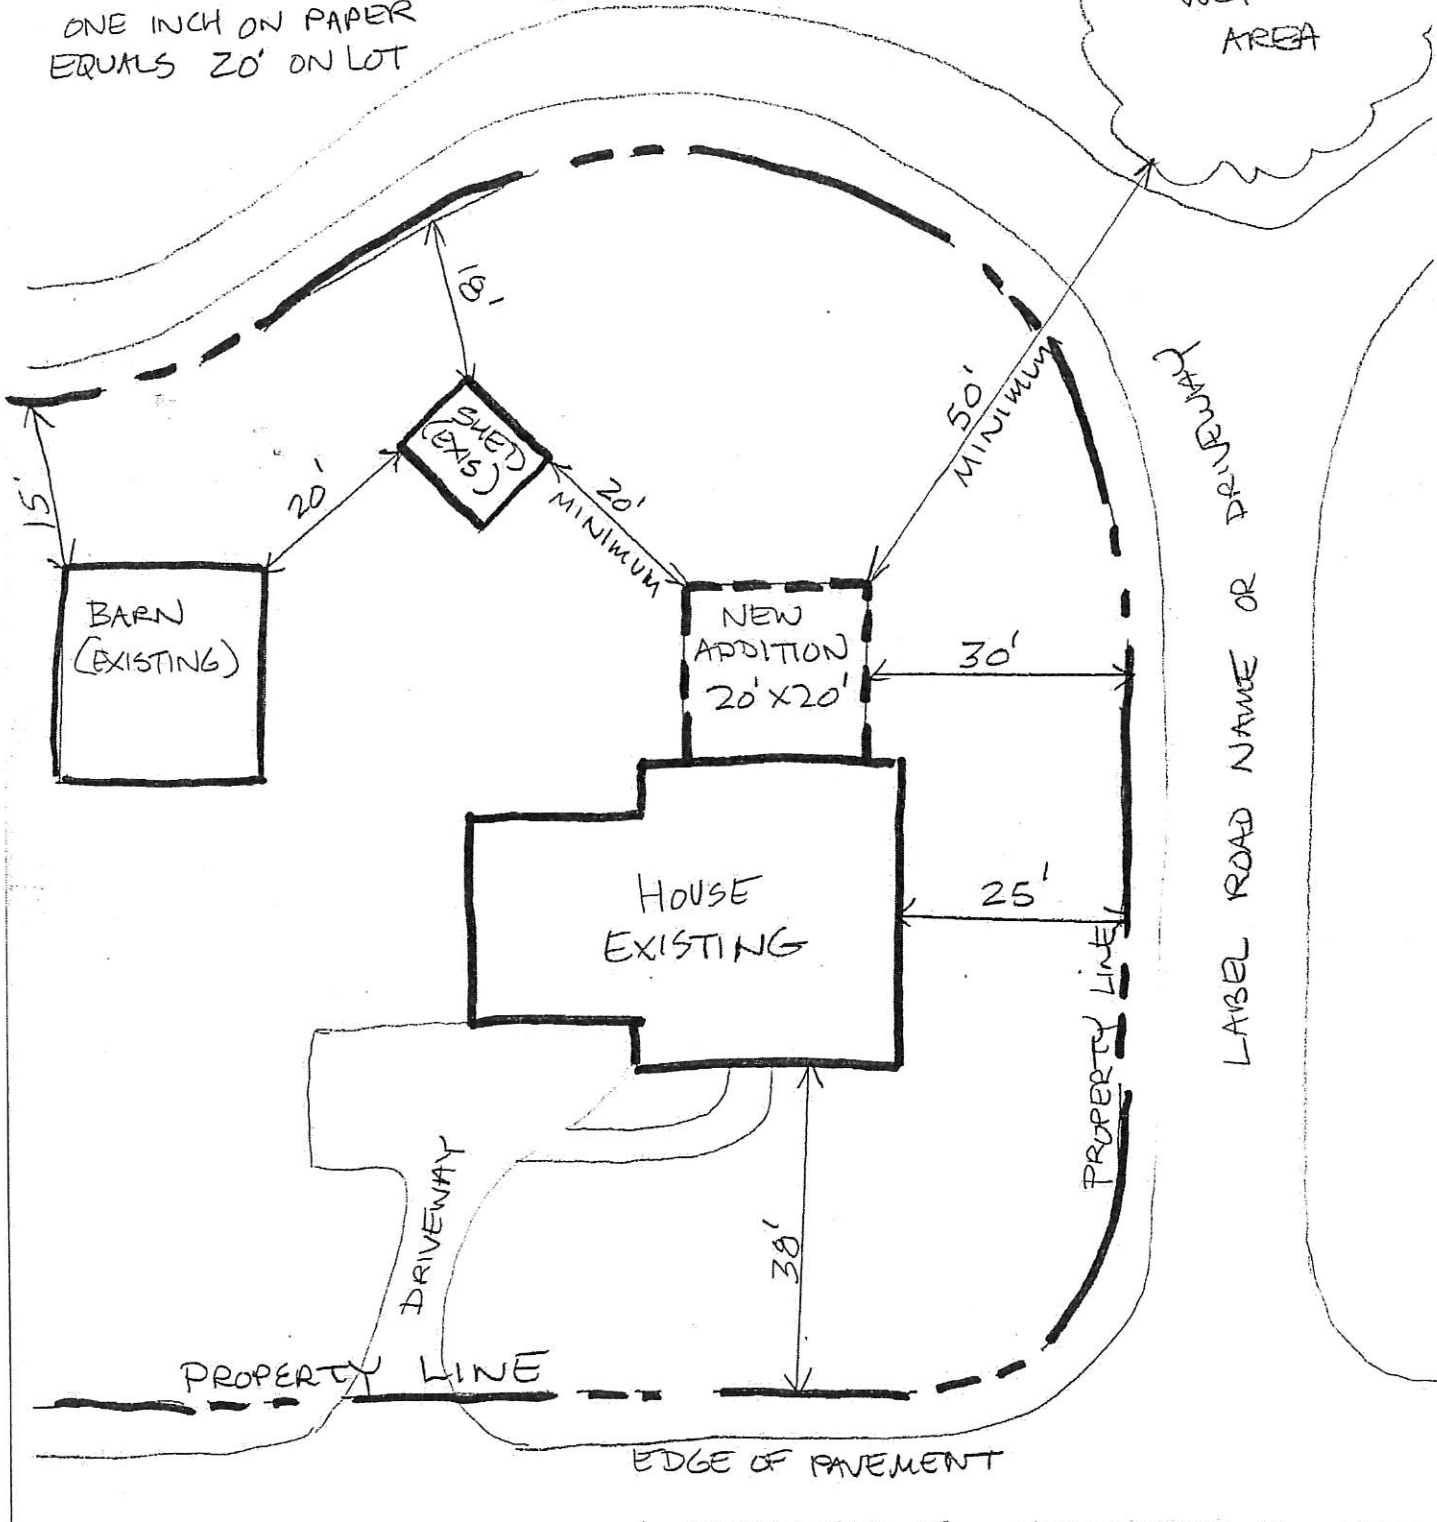 ONE INCH ON PAPER
EQUALS 20' ON LOT
AREA
18'
15'
20'
SHED
(EXIS)
20'
MINIMUM
50'
MINIMUM
BARN
(EXISTING)
NEW
ADDITION
20' X 20'
30'
HOUSE
EXISTING
25'
PROPERTY LINE
LABEL ROAD NAME OR DRIVEWAY
DRIVEWAY
38'
PROPERTY LINE
EDGE OF PAVEMENT